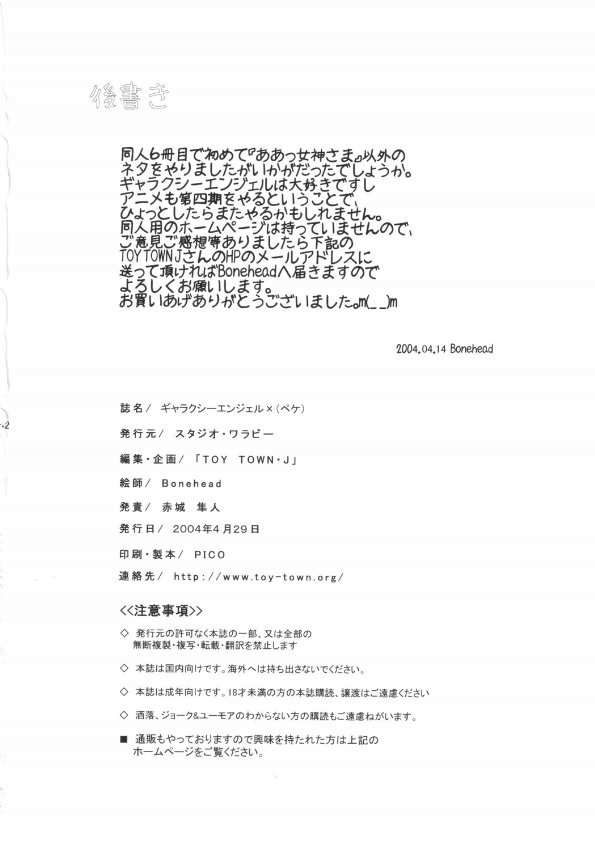 後書き
同人6冊目で初めて『ああっ女神さま』以外の
ネタをやりましたがいかがだったでしょうか。
ギャラクシーエンジェルは大好きですし
アニメも第四期をやるということで、
ひょっとしたらまたやるかもしれません。
同人用のホームページは持っていませんので、
ご意見ご感想等ありましたら下記の
TOYTOWNJさんのHPのメールアドレスに
送って頂ければBoneheadへ届きますので
よろしくお願いします。
お買いあげありがとうございました。m(__)m
2004.04.14 Bonehead
誌名/ ギャラクシーエンジェル×(ペケ)
発行元/ スタジオ・ワラビー
編集・企画/ 「TOY TOWN・J」
絵師/ Bonehead
発責/ 赤城 隼人
発行日/ 2004年4月29日
印刷・製本/ PICO
連絡先/ http://www.toy-town.org/
<<注意事項>>
◇ 発行元の許可なく本誌の一部、又は全部の
無断複製・複写・転載・翻訳を禁止します
◇ 本誌は国内向けです。海外へは持ち出さないでください。
◇ 本誌は成年向けです。18才未満の方の本誌購読、譲渡はご遠慮ください
◇ 洒落、ジョーク&ユーモアのわからない方の購読もご遠慮ねがいます。
■ 通販もやっておりますので興味を持たれた方は上記の
ホームページをご覧ください。